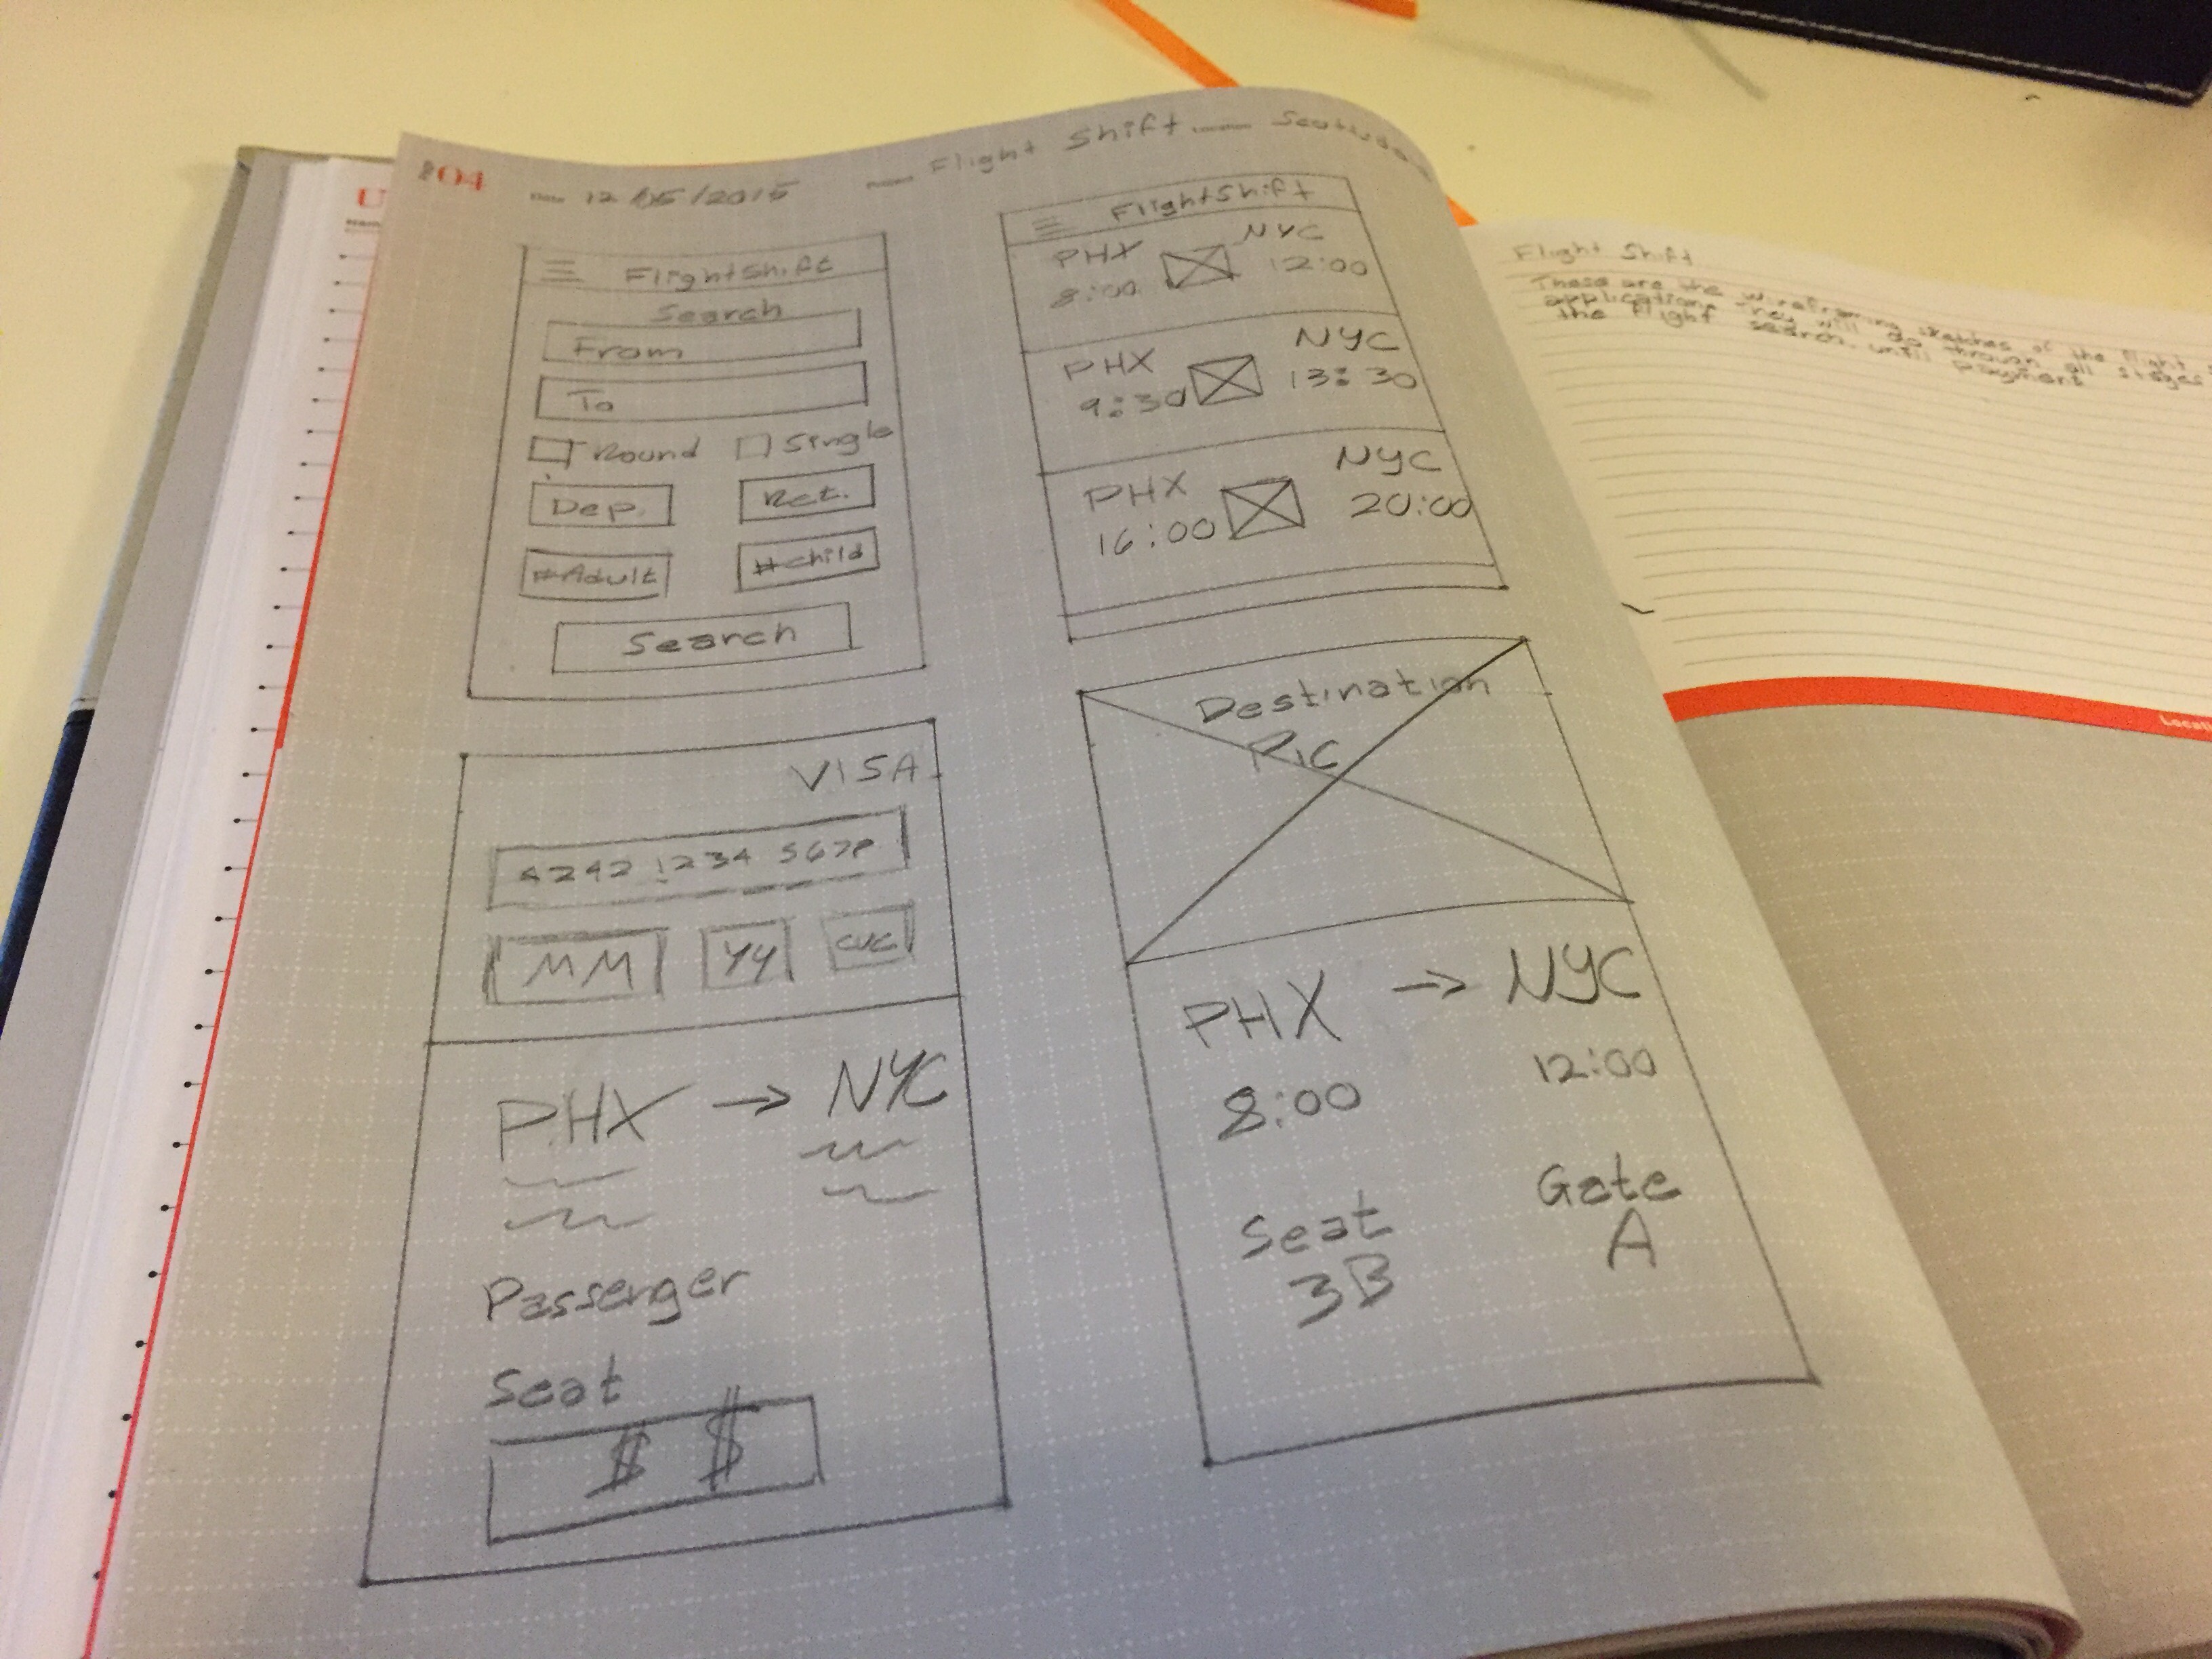 U
804 12/05/2015 Flight Shift
FlightShift
Search
From
To
Round Single
Dep. Ret.
#Adult #Child
Search
FlightShift
PHX NYC
8:00 12:00
PHX NYC
9:30 13:30
PHX NYC
16:00 20:00
VISA
4242 1234 5678
MM YY CVC
PHX → NYC
Passenger
Seat
$ $
Destination
Pic
PHX → NYC
8:00 12:00
Seat Gate
3B A
Flight Shift
These are the wireframing sketches of the flight
application. They will go through all stages
the flight search until payment
Locati